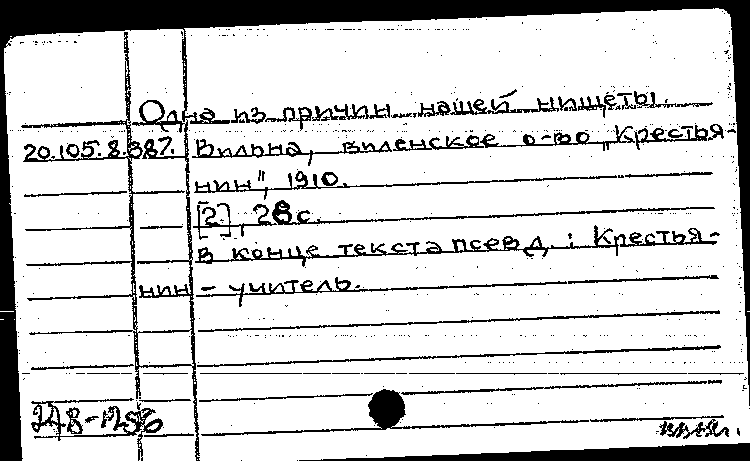 Одна из причин нашей нищеты.
20.105.8.387. Вильна, виленское о-во „Крестья-
нин", 1910.
[2], 28 с.
В конце текста псевд.: Крестья-
нин - учитель.